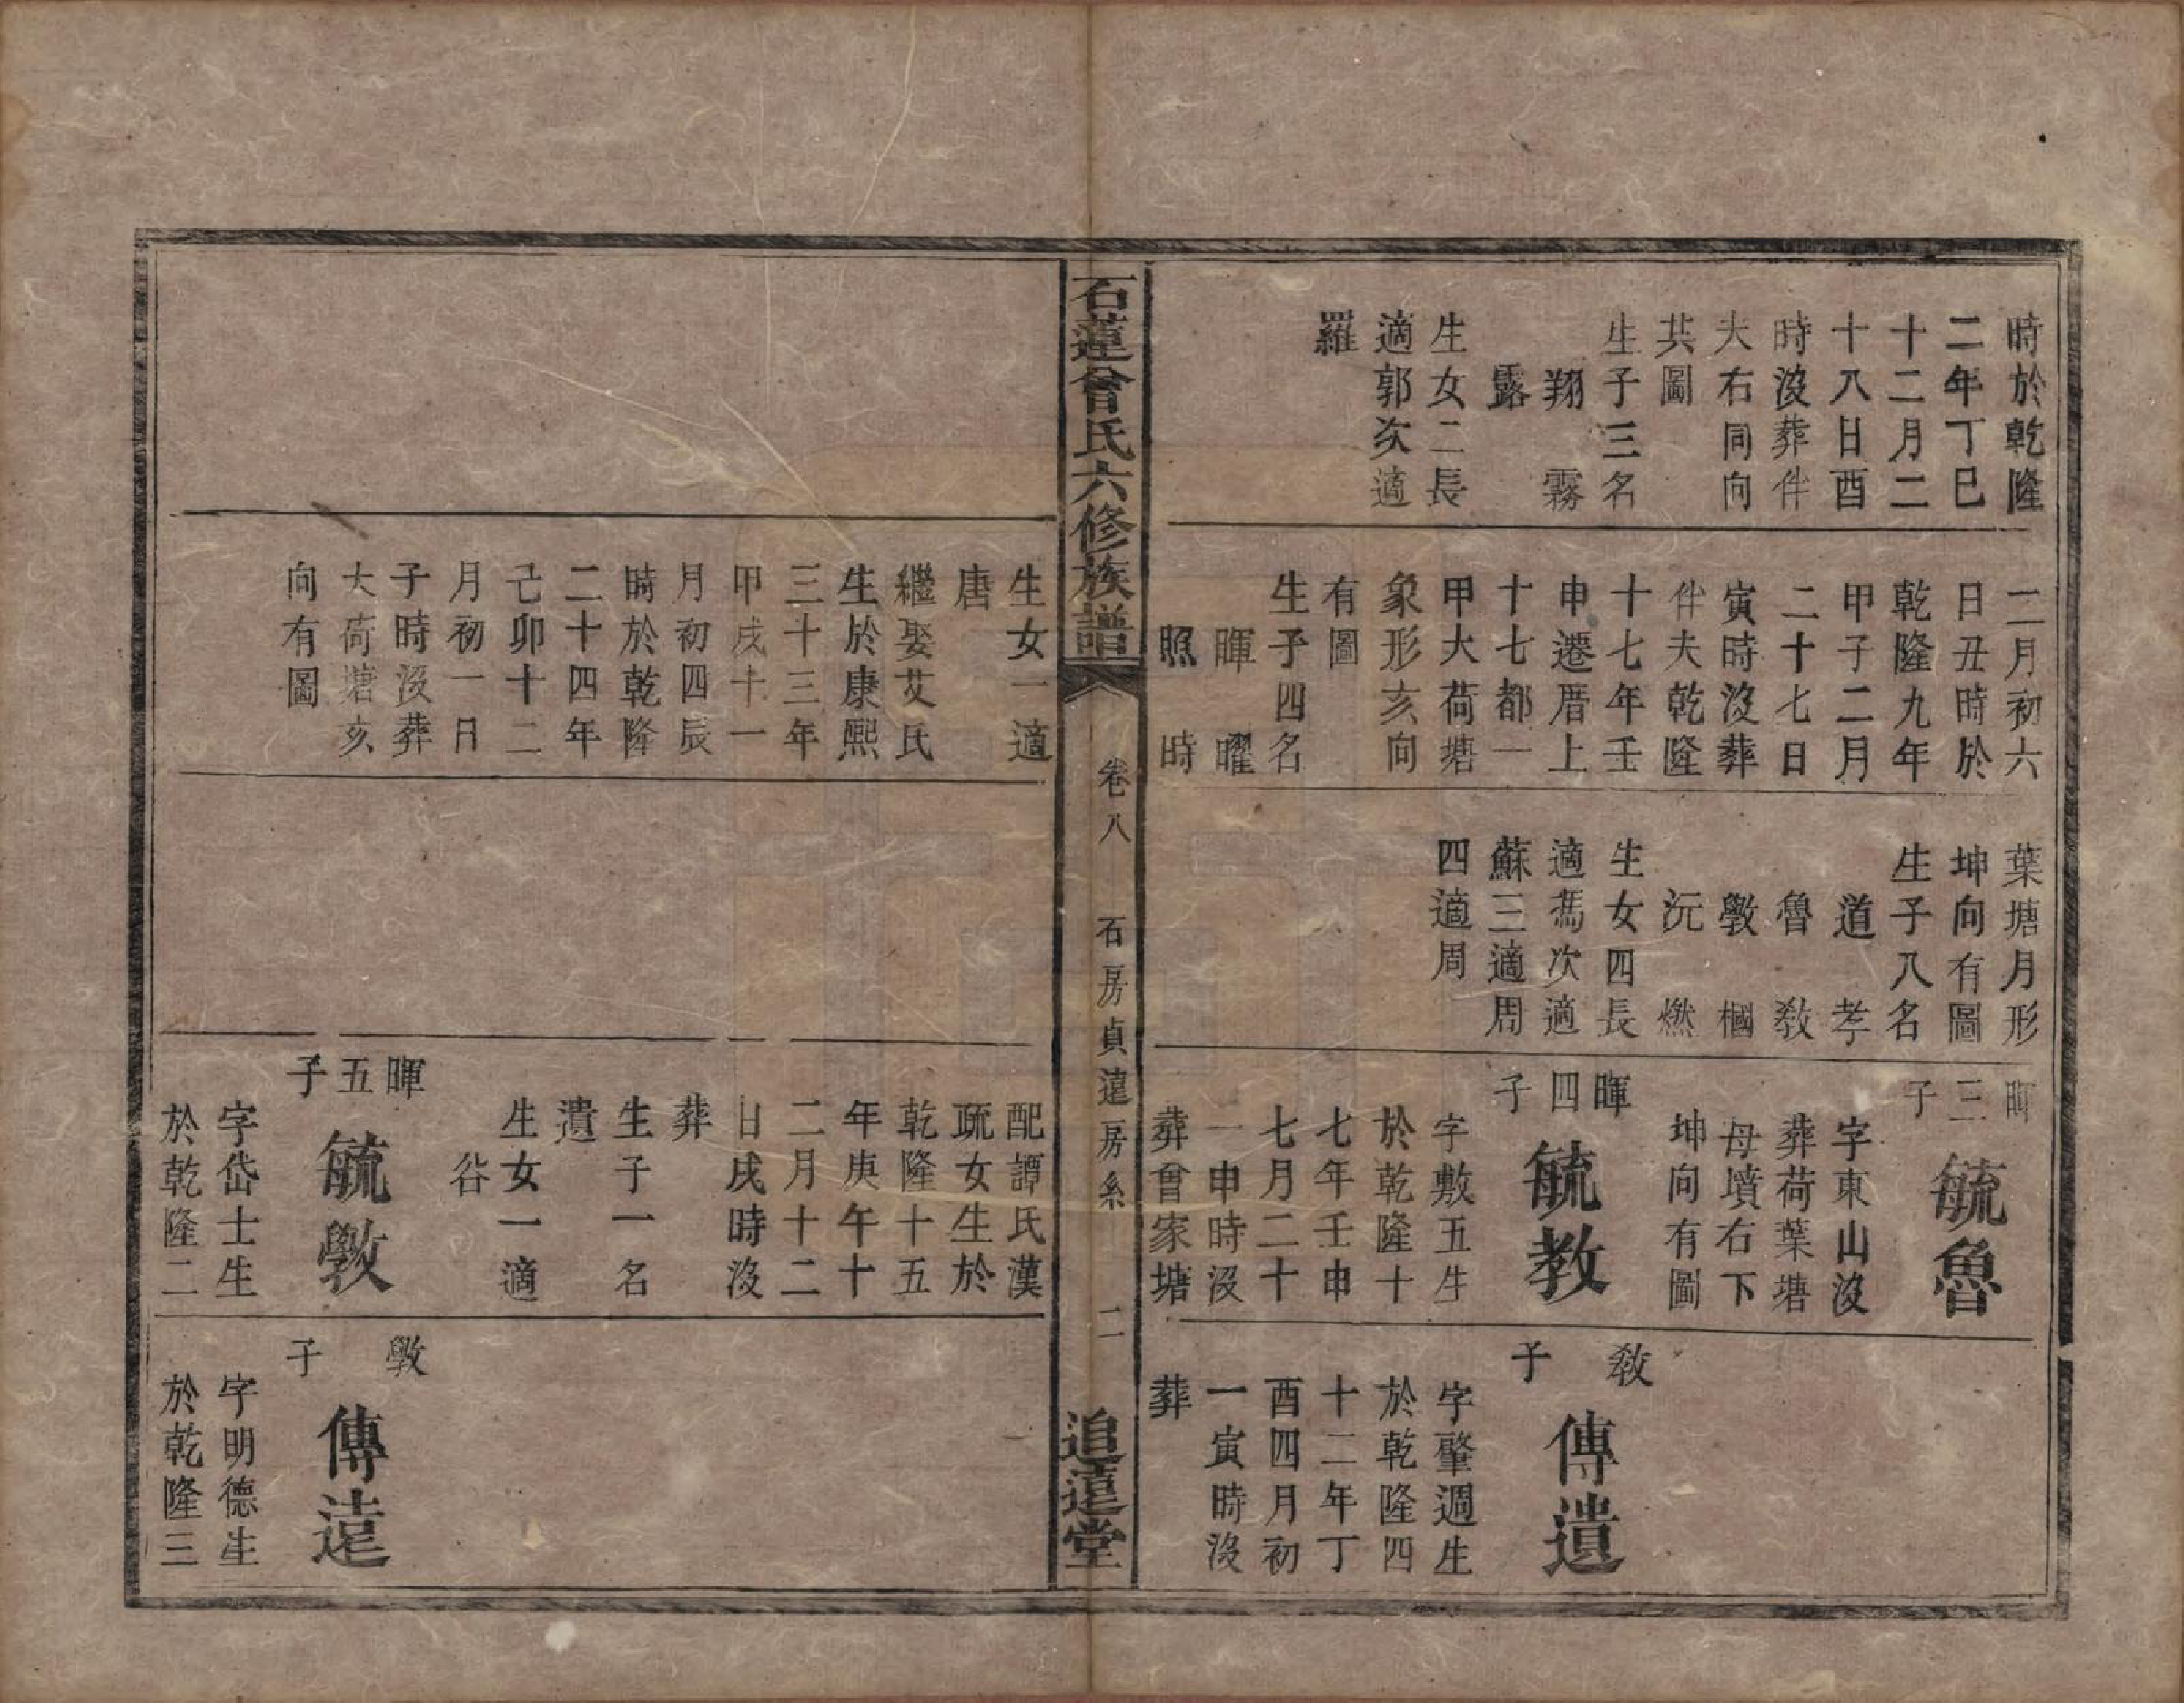 時於乾隆
二年丁巳
十二月二
十八日酉
時沒葬件
夫右同向
共圖
生子三名
翔 霧
露
生女二長
適郭次適
羅
二月初六
日丑時於
乾隆九年
甲子二月
二十七日
寅時沒葬
件夫乾隆
十七年壬
申遷厝上
十七都一
甲大荷塘
象形亥向
有圖
生子四名
暉 曜
照 時
葉塘月形
坤向有圖
生子八名
道 孝
魯 教
斆 槶
沅 燃
生女四長
適馮次適
蘇三適周
四適周
暉三子
毓魯
字東山沒
葬荷葉塘
母墳右下
坤向有圖
暉四子
毓教
字敷五生
於乾隆十
七年壬申
七月二十
一申時沒
葬曾家塘
教子
傳遺
字肇週生
於乾隆四
十二年丁
酉四月初
一寅時沒
葬
石蓮曾氏六修族譜
卷八 石房貞遠房系 二
追遠堂
生女一適
唐
繼娶艾氏
生於康熙
三十三年
甲戌十一
月初四辰
時於乾隆
二十四年
己卯十二
月初一日
子時沒葬
大荷塘亥
向有圖
配譚氏漢
疏女生於
乾隆十五
年庚午十
二月十二
日戌時沒
葬
生子一名
遺
生女一適
谷
暉五子
毓斆
字岱士生
於乾隆二
斆子
傳遠
字明德生
於乾隆三